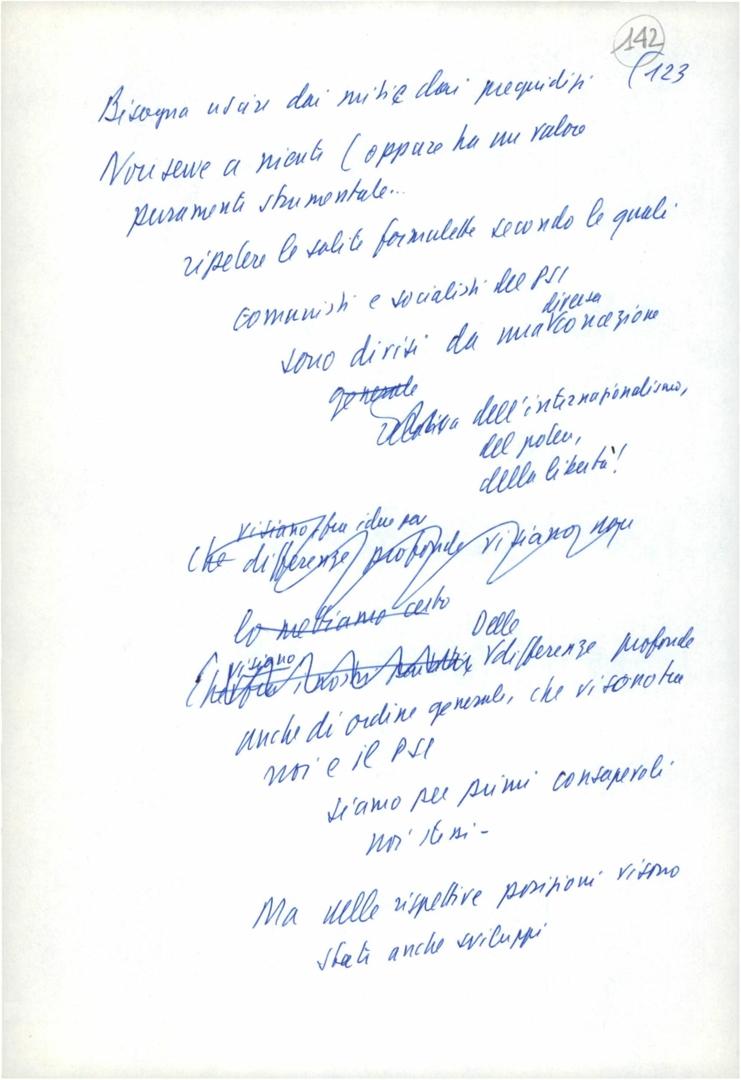 142
(123
Bisogna uscire dai miti e dai pregiudizi
Non serve a niente (oppure ha un valore
puramente strumentale...
ripetere le solite formulette secondo le quali
comunisti e socialisti del PSI
diversa
sono divisi da una concezione
generale
relativa dell'internazionalismo,
del potere,
della libertà!
vi siano fra i due
Che differenze profonde vi siano non
lo mettiamo certo
Delle
vi siano
Che fra i nostri partiti differenze profonde
anche di ordine generale, che vi sono tra
noi e il PSI
siamo per primi consapevoli
noi stessi -
Ma nelle rispettive posizioni vi sono
stati anche sviluppi